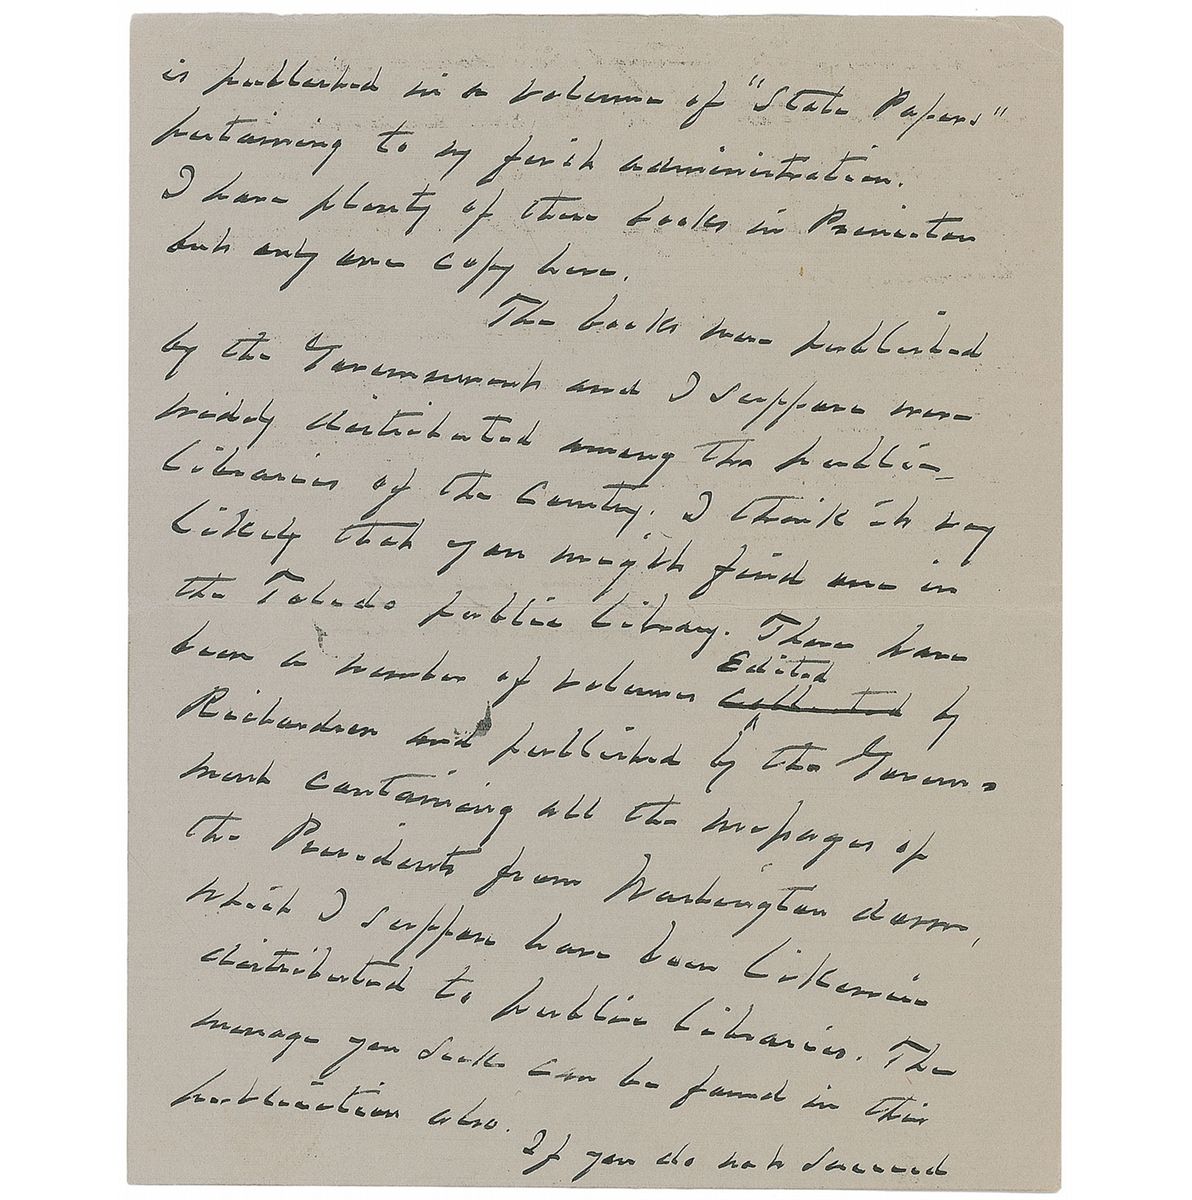 is published in a volume of "State Papers"
pertaining to my first administration.
I have plenty of these books in Princeton
but only one copy here.
The books were published
by the Government and I suppose were
widely distributed among the public
libraries of the Country. I think it very
likely that you might find one in
the Toledo public library. There have
been a number of volumes Collected Edited by
Richardson and published by the Govern=
ment containing all the messages of
the Presidents from Washington down,
which I suppose have been likewise
distributed to public libraries. The
message you seek can be found in this
publication also.
If you do not succeed